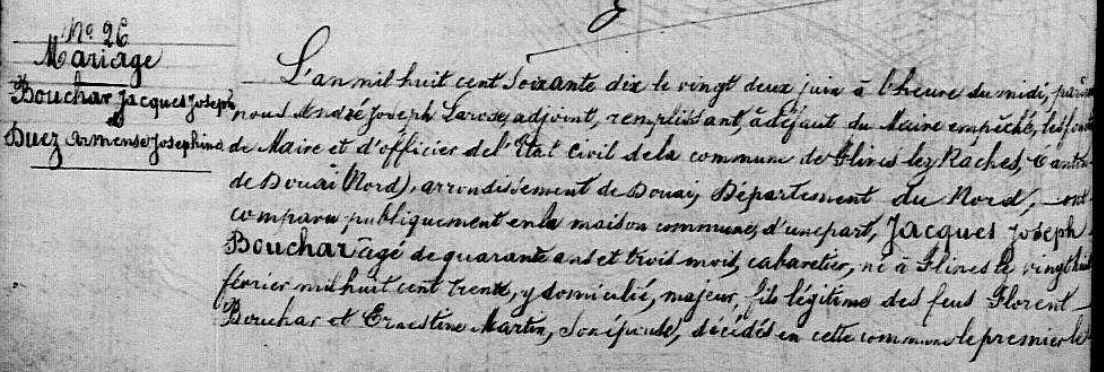 Nº 26
Mariage
Bouchar Jacques Joseph
&
Duez Armense Josephine
L'an mil huit cent Soixante dix le vingt deux juin à l'heure du midi, par
nous André Joseph Laroze, adjoint, remplissant, à défaut du Maire empêché, les fonc
de Maire et d'officier de l'Etat Civil de la commune de Flines lez Raches, Canton
de Douai (Nord), arrondissement de Douai, Département du Nord, ont
comparu publiquement en la maison commune, d'une part, Jacques Joseph
Bouchar âgé de quarante ans et trois mois, cabaretier, né à Flines le vingt huit
février mil huit cent trente, y domicilié, majeur, fils légitime des feus Florent
Bouchar et Ernestine Martin, Son épouse, décédés en cette commune le premier le